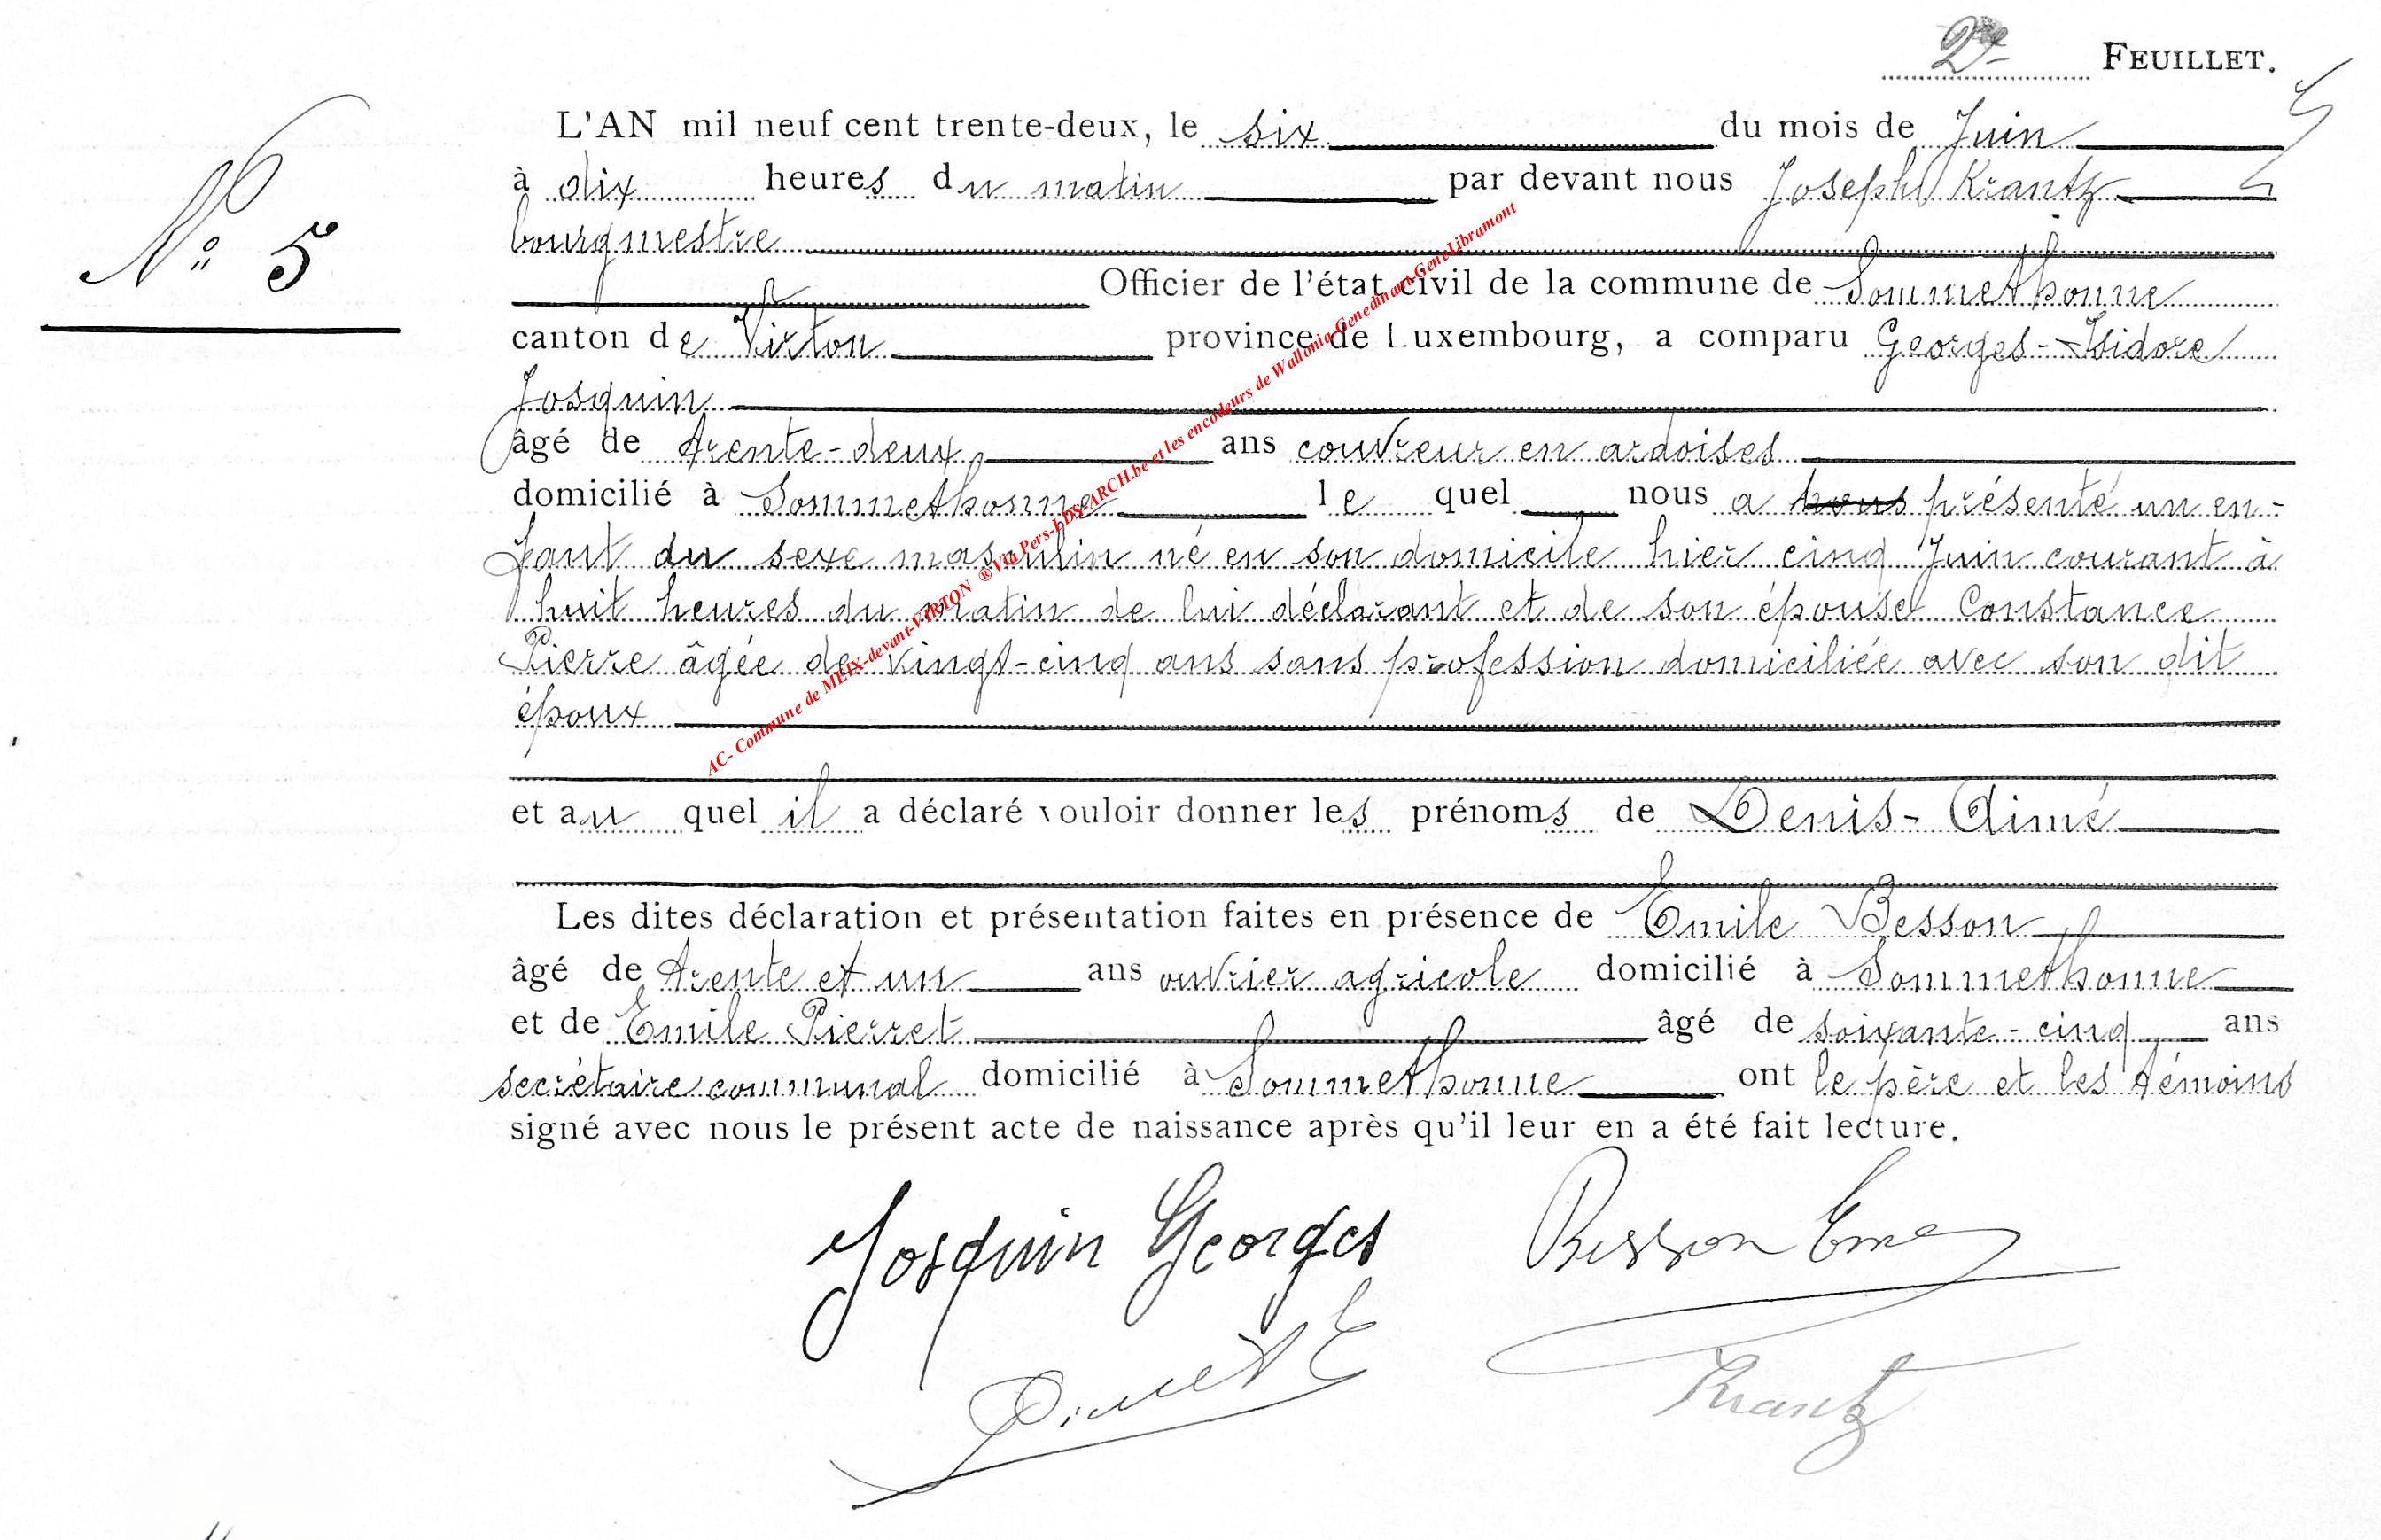 2e FEUILLET.
L'AN mil neuf cent trente-deux, le six du mois de Juin
à dix heures du matin par devant nous Joseph Krantz
bourgmestre
N° 5
Officier de l'état civil de la commune de Sommethonne
canton de Virton province de Luxembourg, a comparu Georges-Isidore
Josquin
âgé de trente-deux ans couvreur en ardoises
domicilié à Sommethonne lequel nous a nous présenté un en-
fant du sexe masculin né en son domicile hier cinq Juin courant à
huit heures du matin de lui déclarant et de son épouse Constance
Pierre âgée de vingt-cinq ans sans profession domiciliée avec son dit
époux
et au quel il a déclaré vouloir donner les prénoms de Denis-Aimé
Les dites déclaration et présentation faites en présence de Emile Besson
âgé de trente et un ans ouvrier agricole domicilié à Sommethonne
et de Emile Pierret âgé de soixante-cinq ans
secrétaire communal domicilié à Sommethonne ont le père et les témoins
signé avec nous le présent acte de naissance après qu'il leur en a été fait lecture.
Josquin Georges Besson Eme
Pierret E
Krantz
AC- Commune de MEIX-devant-VIRTON ® Via Pers-LDS-ARCH.be et les encodeurs de Wallonia-Genedinant-GeneLibramont